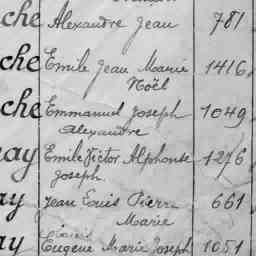 che Alexandre Jean 781
che Emile Jean Marie 1416
Noël
che Emmanuel Joseph 1049
Alexandre
ay Emile Victor Alphonse 1276
Joseph
ay Jean Louis Pierre 661
Marie
ay Eugène Marie Joseph 1051